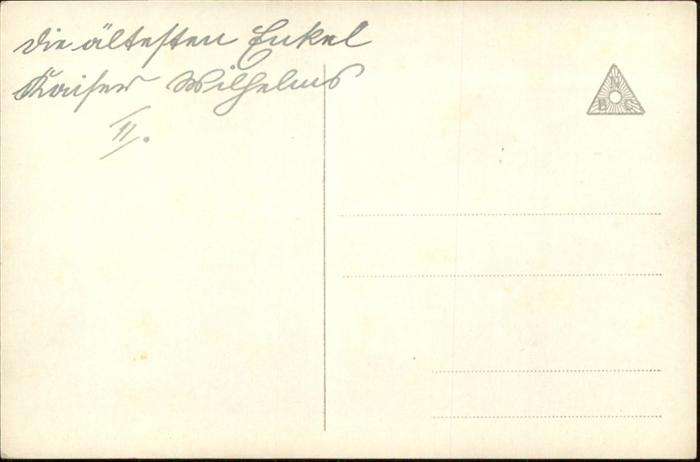 die ältesten Enkel
Kaiser Wilhelms
II.
N
B C